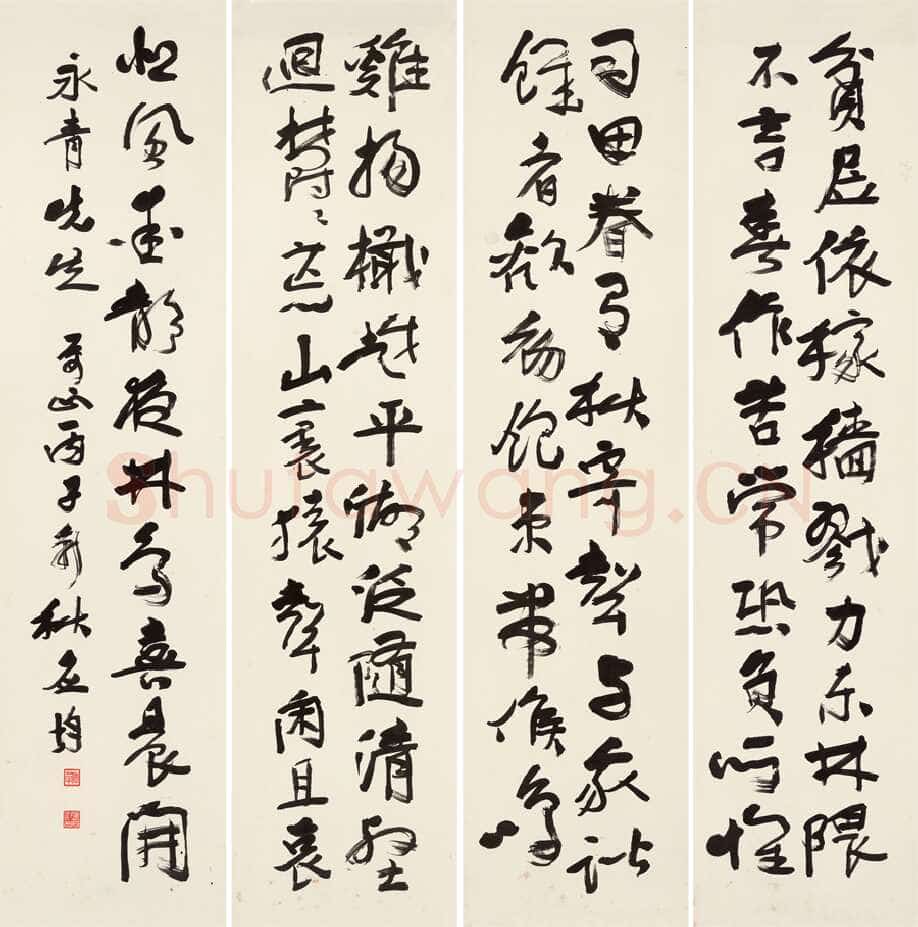 貧居依稼穡戮力東林隈
不言春作苦常恐負所懷
司田眷有秋寄聲與我諧
飢者歡初飽束帶候鳴
雞揚檝越平湖泛隨清壑
迴鬱〻荒山裏猿聲閑且哀
悲風愛靜夜林鳥喜晨開
永青先生 正丙子新秋
Shufawang.CN